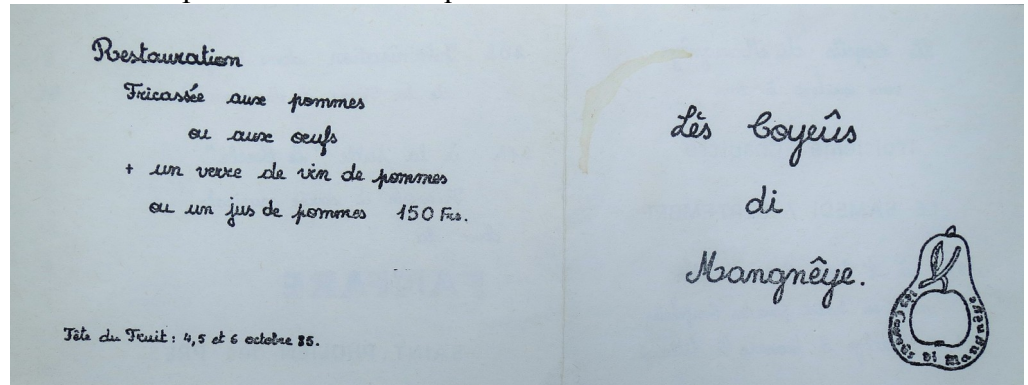 Restauration
Fricassée aux pommes
ou aux oeufs
+ un verre de vin de pommes
ou un jus de pommes 150 Frs.
Fête du Fruit : 4, 5 et 6 octobre 85.
Lès Coyeûs
di
Mangnêye.
Lès Coyeûs di Mangnêye